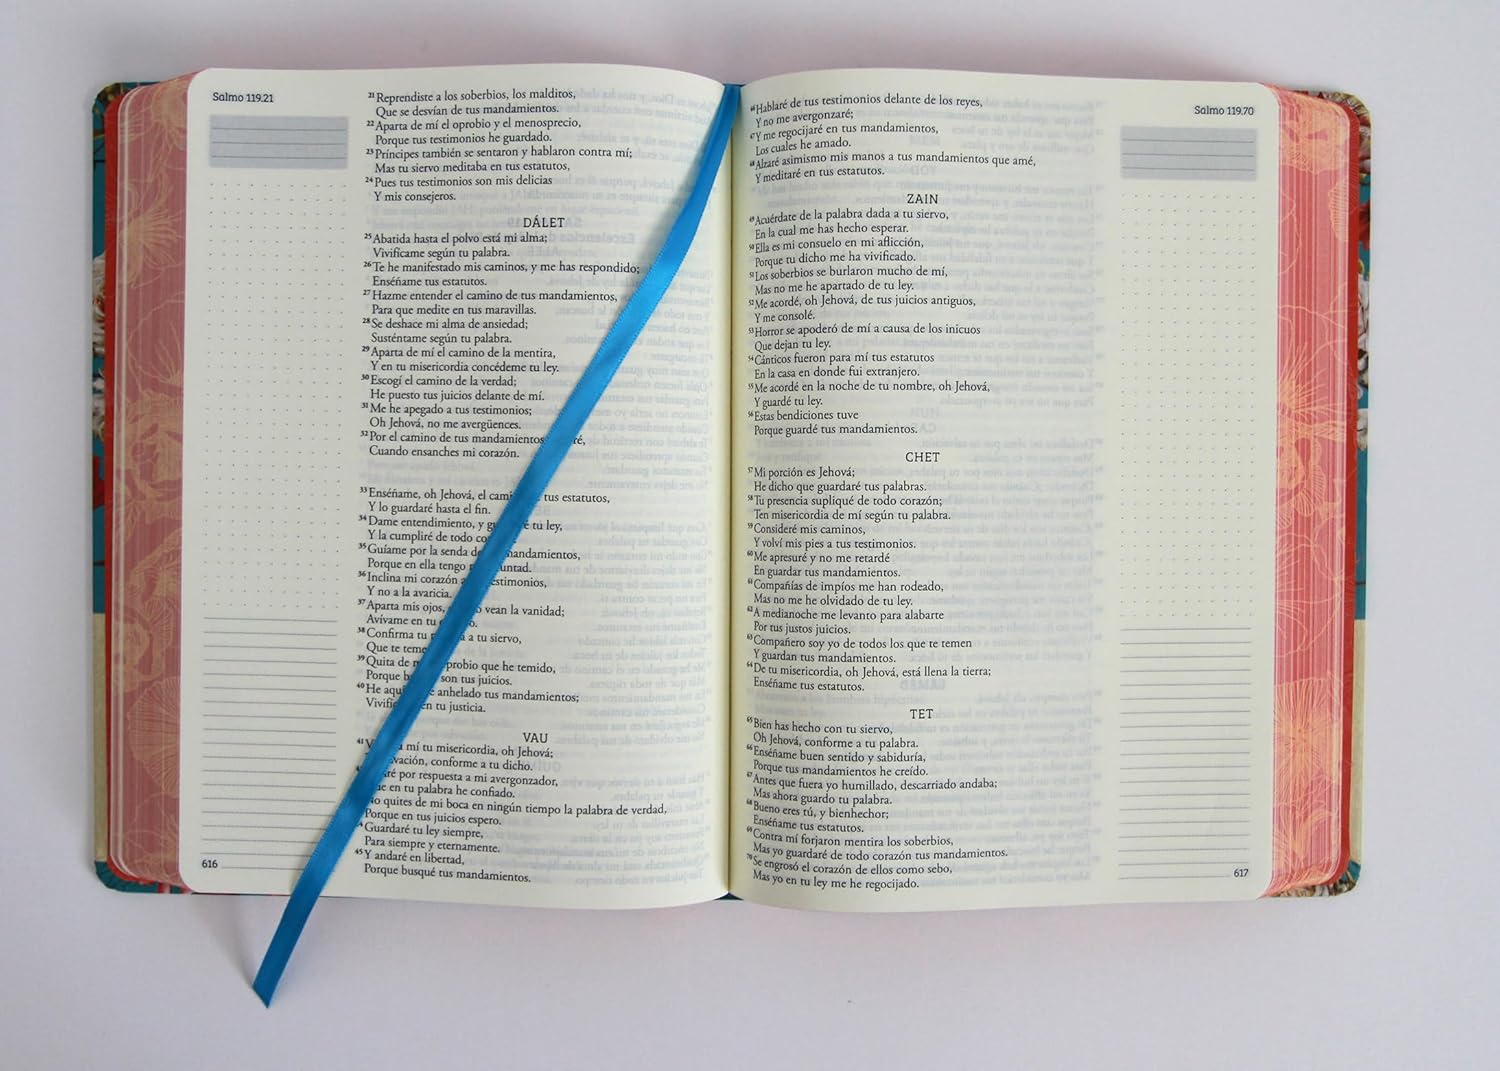 Salmo 119.21
²¹Reprendiste a los soberbios, los malditos,
Que se desvían de tus mandamientos.
²²Aparta de mí el oprobio y el menosprecio,
Porque tus testimonios he guardado.
²³Príncipes también se sentaron y hablaron contra mí;
Mas tu siervo meditaba en tus estatutos,
²⁴Pues tus testimonios son mis delicias
Y mis consejeros.
DÁLET
²⁵Abatida hasta el polvo está mi alma;
Vivifícame según tu palabra.
²⁶Te he manifestado mis caminos, y me has respondido;
Enséñame tus estatutos.
²⁷Hazme entender el camino de tus mandamientos,
Para que medite en tus maravillas.
²⁸Se deshace mi alma de ansiedad;
Susténtame según tu palabra.
²⁹Aparta de mí el camino de la mentira,
Y en tu misericordia concédeme tu ley.
³⁰Escogí el camino de la verdad;
He puesto tus juicios delante de mí.
³¹Me he apegado a tus testimonios;
Oh Jehová, no me avergüences.
³²Por el camino de tus mandamientos
Cuando ensanches mi corazón.
³³Enséñame, oh Jehová, el tus estatutos,
Y lo guardaré hasta el fin.
³⁴Dame entendimiento, y tu ley,
Y la cumpliré de todo
³⁵Guíame por la senda de mandamientos,
Porque en ella tengo
³⁶Inclina mi corazón a
Y no a la avaricia.
³⁷Aparta mis ojos, vean la vanidad;
Avívame en tu
³⁸Confirma tu a tu siervo,
Que te
³⁹Quita de oprobio que he temido,
Porque son tus juicios.
⁴⁰He anhelado tus mandamientos;
en tu justicia.
VAU
⁴¹ a mí tu misericordia, oh Jehová;
conforme a tu dicho.
por respuesta a mi avergonzador,
en tu palabra he confiado.
No quites de mi boca en ningún tiempo la palabra de verdad,
Porque en tus juicios espero.
Guardaré tu ley siempre,
Para siempre y eternamente.
⁴⁵Y andaré en libertad,
Porque busqué tus mandamientos.
616
Salmo 119.70
⁴⁶Hablaré de tus testimonios delante de los reyes,
Y no me avergonzaré;
⁴⁷Y me regocijaré en tus mandamientos,
Los cuales he amado.
⁴⁸Alzaré asimismo mis manos a tus mandamientos que amé,
Y meditaré en tus estatutos.
ZAIN
⁴⁹Acuérdate de la palabra dada a tu siervo,
En la cual me has hecho esperar.
⁵⁰Ella es mi consuelo en mi aflicción,
Porque tu dicho me ha vivificado.
⁵¹Los soberbios se burlaron mucho de mí,
Mas no me he apartado de tu ley.
⁵²Me acordé, oh Jehová, de tus juicios antiguos,
Y me consolé.
⁵³Horror se apoderó de mí a causa de los inicuos
Que dejan tu ley.
⁵⁴Cánticos fueron para mí tus estatutos
En la casa en donde fui extranjero.
⁵⁵Me acordé en la noche de tu nombre, oh Jehová,
Y guardé tu ley.
⁵⁶Estas bendiciones tuve
Porque guardé tus mandamientos.
CHET
⁵⁷Mi porción es Jehová;
He dicho que guardaré tus palabras.
⁵⁸Tu presencia supliqué de todo corazón;
Ten misericordia de mí según tu palabra.
⁵⁹Consideré mis caminos,
Y volví mis pies a tus testimonios.
⁶⁰Me apresuré y no me retardé
En guardar tus mandamientos.
⁶¹Compañías de impíos me han rodeado,
Mas no me he olvidado de tu ley.
⁶²A medianoche me levanto para alabarte
Por tus justos juicios.
⁶³Compañero soy yo de todos los que te temen
Y guardan tus mandamientos.
⁶⁴De tu misericordia, oh Jehová, está llena la tierra;
Enséñame tus estatutos.
TET
⁶⁵Bien has hecho con tu siervo,
Oh Jehová, conforme a tu palabra.
⁶⁶Enséñame buen sentido y sabiduría,
Porque tus mandamientos he creído.
⁶⁷Antes que fuera yo humillado, descarriado andaba;
Mas ahora guardo tu palabra.
⁶⁸Bueno eres tú, y bienhechor;
Enséñame tus estatutos.
⁶⁹Contra mí forjaron mentira los soberbios,
Mas yo guardaré de todo corazón tus mandamientos.
⁷⁰Se engrosó el corazón de ellos como sebo,
Mas yo en tu ley me he regocijado.
617